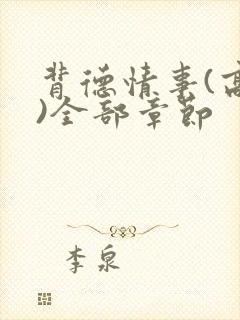 背德情事(高
)全部章节
李泉